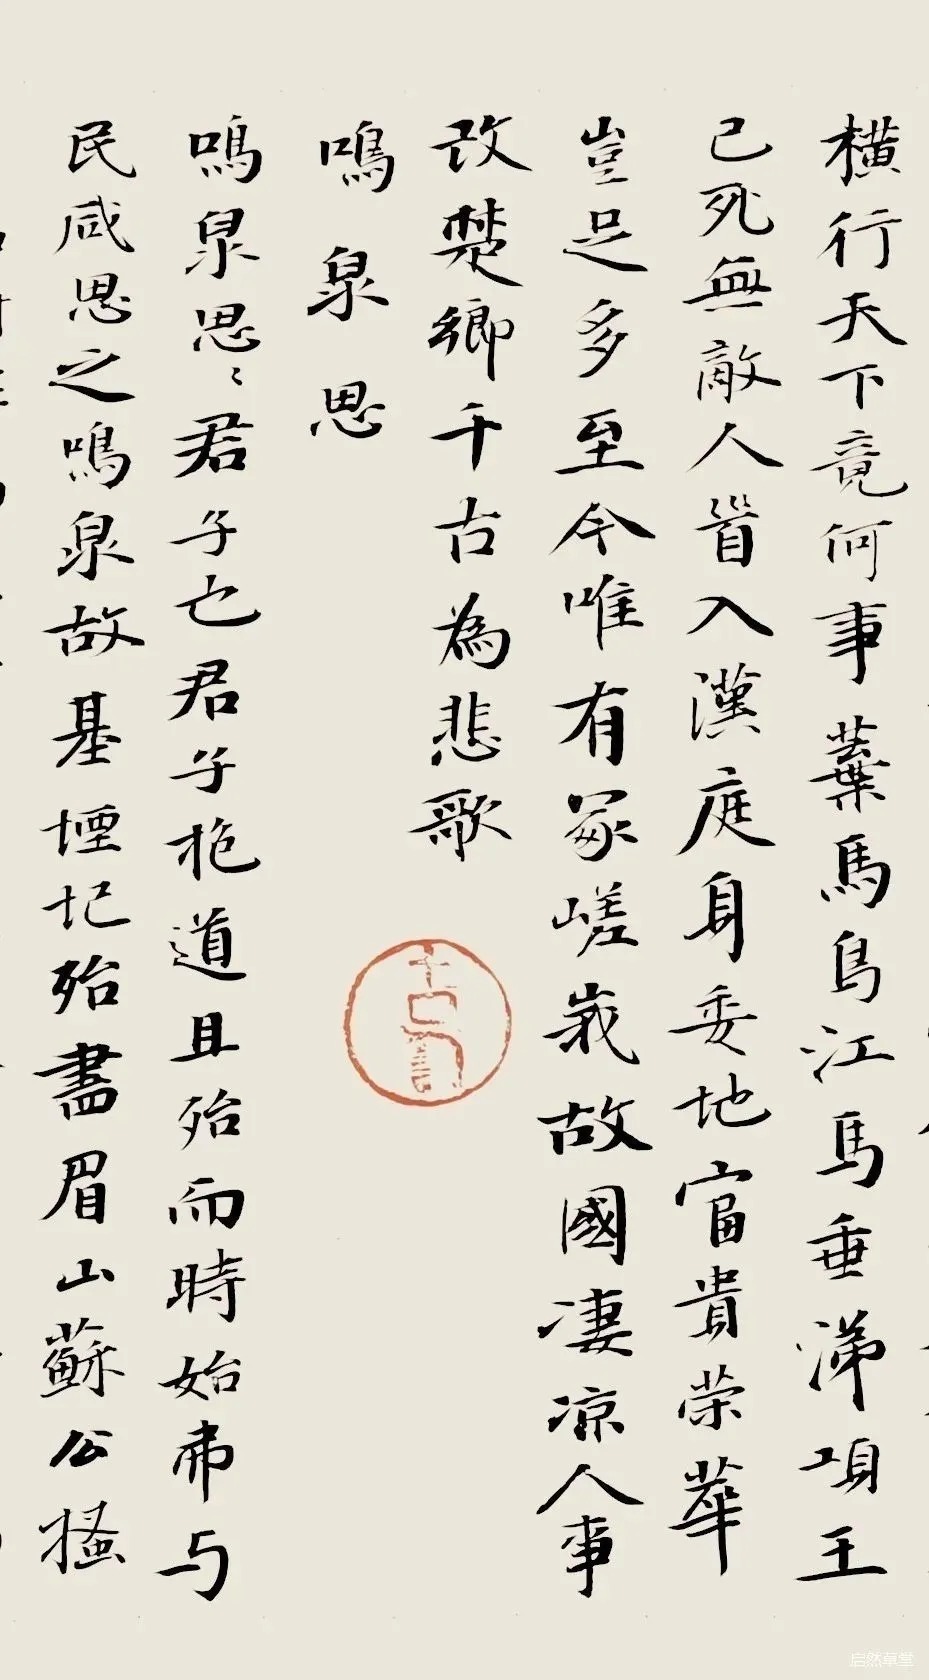 橫行天下竟何事棄馬烏江馬垂涕項王
已死無敵人首入漢庭身委地富貴荣華
豈足多至今唯有冢嵯峩故國凄凉人事
改楚鄉千古為悲歌
鳴泉思
鳴泉思〻君子也君子抱道且殆而時始弗与
民咸思之鳴泉故基堙圮殆盡眉山蘇公搔
启然草堂